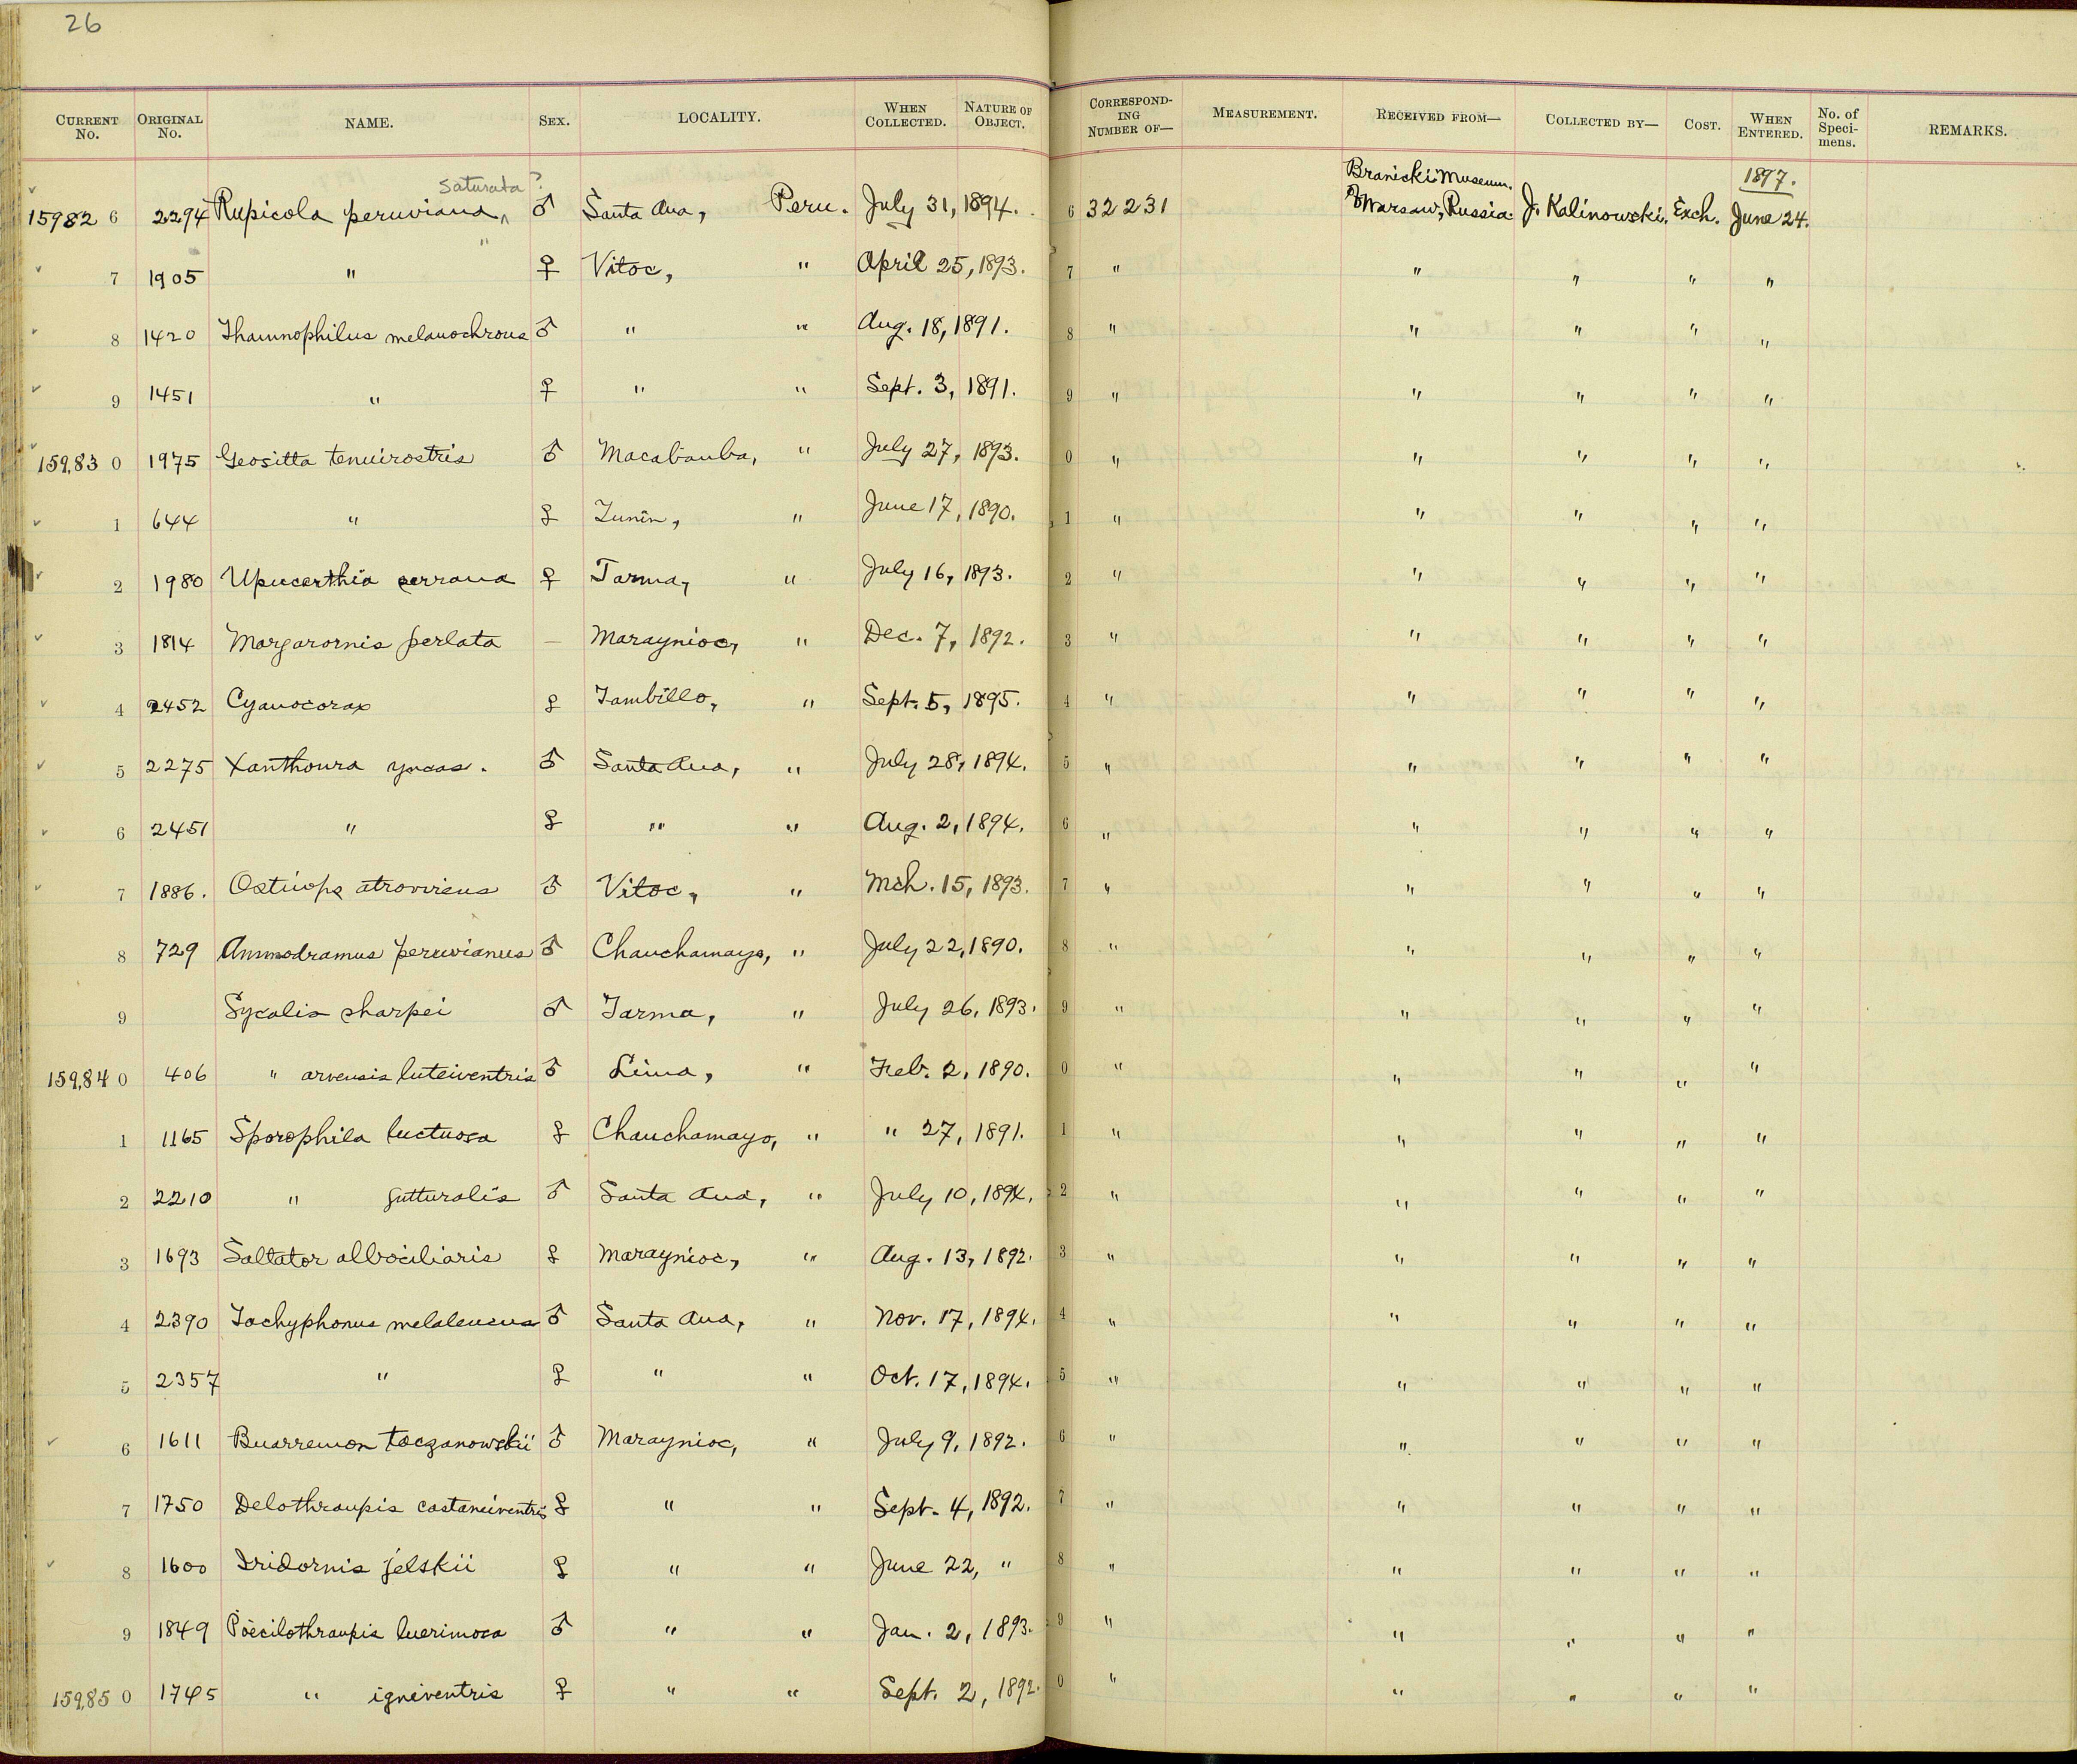 26
CURRENT No. ORIGINAL No. NAME. SEX. LOCALITY. WHEN COLLECTED. NATURE OF OBJECT. CORRESPONDING NUMBER OF— MEASUREMENT. RECEIVED FROM— COLLECTED BY— COST. WHEN ENTERED. No. of Specimens. REMARKS.
saturata? Branicki Museum, 1897.
15982 6 2294 Rupicola peruviana, ^ ♂ Santa Ana, Peru. July 31, 1894. 6 32231 of Warsaw, Russia. J. Kalinowski. Exch. June 24.
"
7 1905 " ♀ Vitoc, " April 25, 1893. 7 " " " " "
8 1420 Thamnophilus melanochrous ♂ " " Aug. 18, 1891. 8 " " " " "
9 1451 " ♀ " " Sept. 3, 1891. 9 " " " " "
159,83 0 1975 Geositta tenuirostris ♂ Macabamba, " July 27, 1893. 0 " " " " "
1 644 " ♀ Junin, " June 17, 1890. 1 " " " " "
2 1980 Upucerthia serrana ♀ Tarma, " July 16, 1893. 2 " " " " "
3 1814 Margarornis perlata — Maraynioc, " Dec. 7, 1892. 3 " " " " "
4 2452 Cyanocorax ♀ Tambillo, " Sept. 5, 1895. 4 " " " " "
5 2275 Xanthoura yncas. ♂ Santa Ana, " July 28, 1894. 5 " " " " "
6 2451 " ♀ " " Aug. 2, 1894. 6 " " " " "
7 1886. Ostinops atrovirens ♂ Vitoc, " Mch. 15, 1893. 7 " " " " "
8 729 Ammodramus peruvianus ♂ Chanchamayo, " July 22, 1890. 8 " " " " "
9 Sycalis sharpei ♂ Tarma, " July 26, 1893. 9 " " " " "
159,84 0 406 " arvensis luteiventris ♂ Lima, " Feb. 2, 1890. 0 " " " " "
1 1165 Sporophila luctuosa ♀ Chanchamayo, " " 27, 1891. 1 " " " " "
2 2210 " gutturalis ♂ Santa Ana, " July 10, 1894. 2 " " " " "
3 1693 Saltator albociliaris ♀ Maraynioc, " Aug. 13, 1892. 3 " " " " "
4 2390 Tachyphonus melaleucus ♂ Santa Ana, " Nov. 17, 1894. 4 " " " " "
5 2357 " ♀ " " Oct. 17, 1894. 5 " " " " "
6 1611 Buarremon taczanowskii ♂ Maraynioc, " July 9, 1892. 6 " " " " "
7 1750 Delothraupis castaneiventris ♀ " " Sept. 4, 1892. 7 " " " " "
8 1600 Iridornis jelskii ♀ " " June 22, " 8 " " " " "
9 1849 Poecilothraupis lucrimosa ♂ " " Jan. 2, 1893. 9 " " " " "
159,85 0 1745 " igniventris ♀ " " Sept. 2, 1892. 0 " " " " "